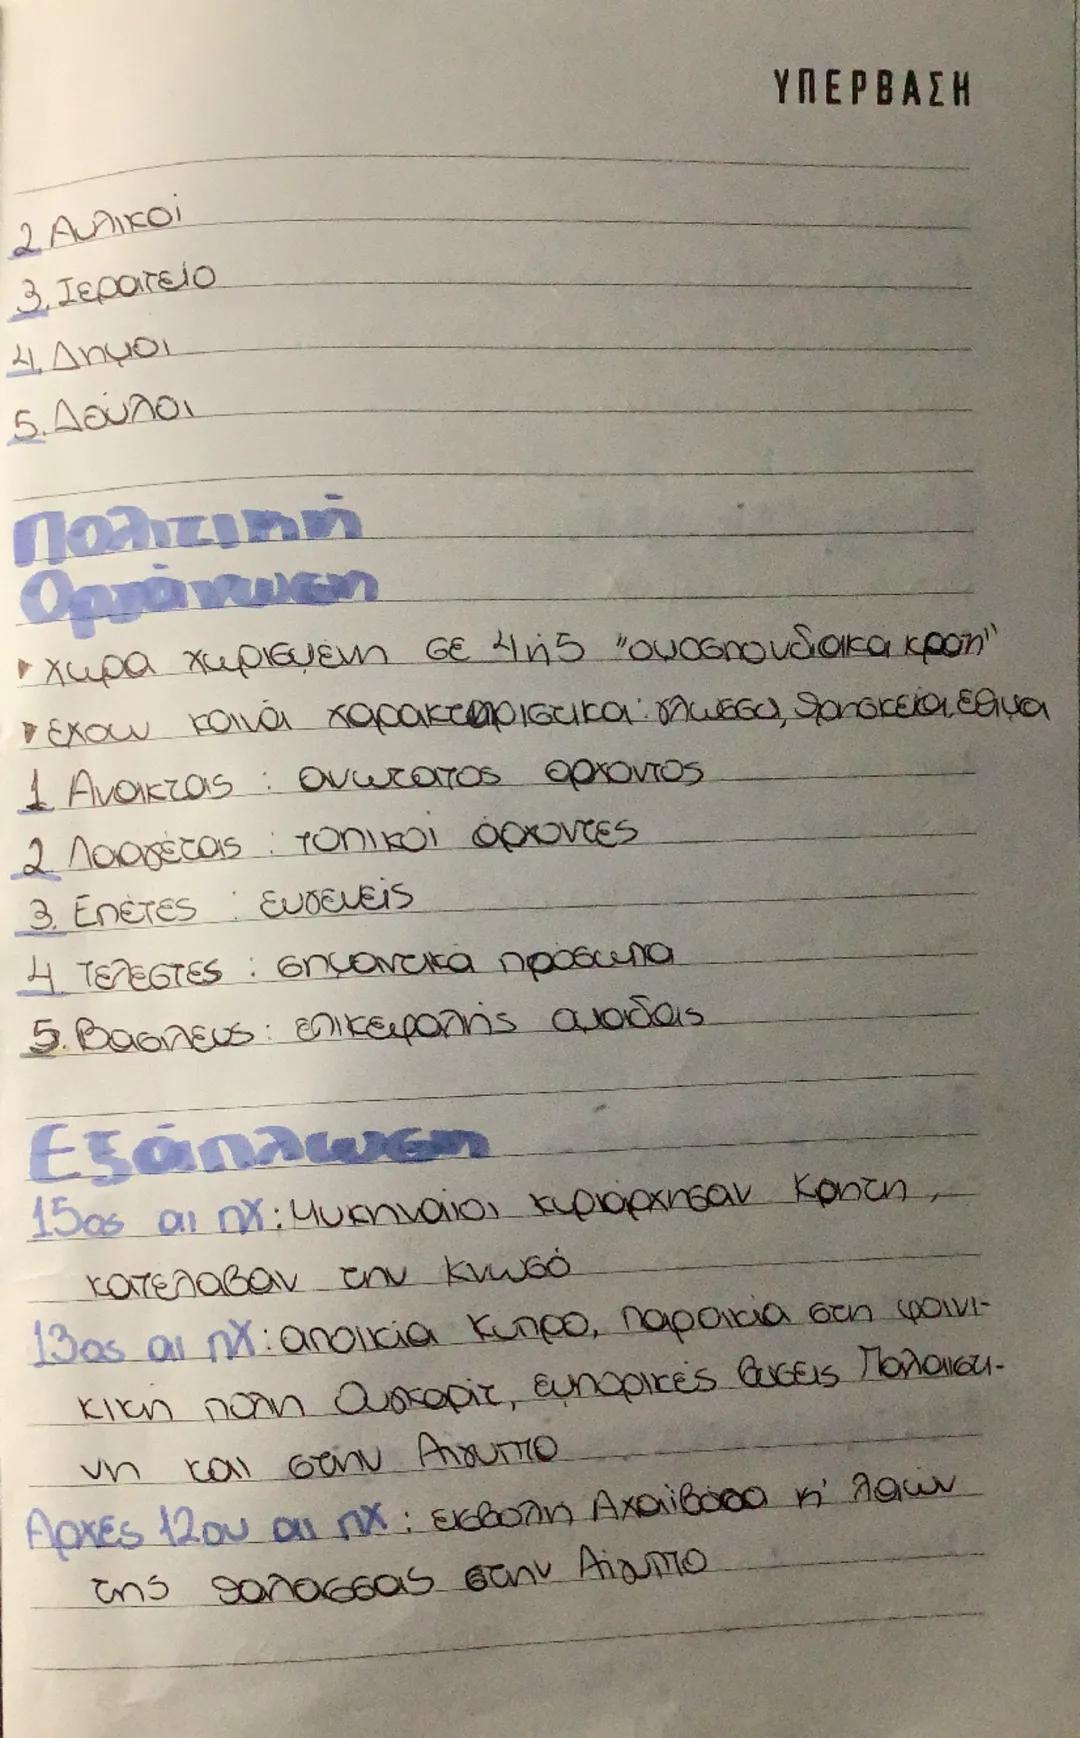 ΥΠΕΡΒΑΣΗ
2 Αυλικοί
3. Ιερατείο
4. Δημοι
5. Δούλοι
Πολιτική
Οργάνωση
▸ χωρα χωρισμένη σε 4 ή 5 "ομοσπονδιακά κρατη"
▸ έχουν κοινά χαρακτηριστικα: γλωσσα, θρησκεία, έθιμα
1 Ανακτας : ανωτατος αρχοντος
2 Λααγέτας : τοπικοί άρχοντες
3. Επέτες : ευγενείς
4 Τελεστες : σημαντικά πρόσωπα
5. Βασιλευς : επικεφαλής ομαδας
Εξάπλωση
15ος αι πΧ: Μυκηναίοι κυριαρχησαν Κρητη,
κατέλαβαν την Κνωσό
13ος αι πΧ: αποικία Κυπρο, παροικία στη φοινι-
κικη πόλη Ουγκαρίτ, εμπορικές θεσεις Παλαιστι-
νη και στην Αιγυπτο
Αρχές 12ου αι πΧ: εισβολη Αχαϊβάσα κ' λαών
της θαλασσας στην Αίγυπτο